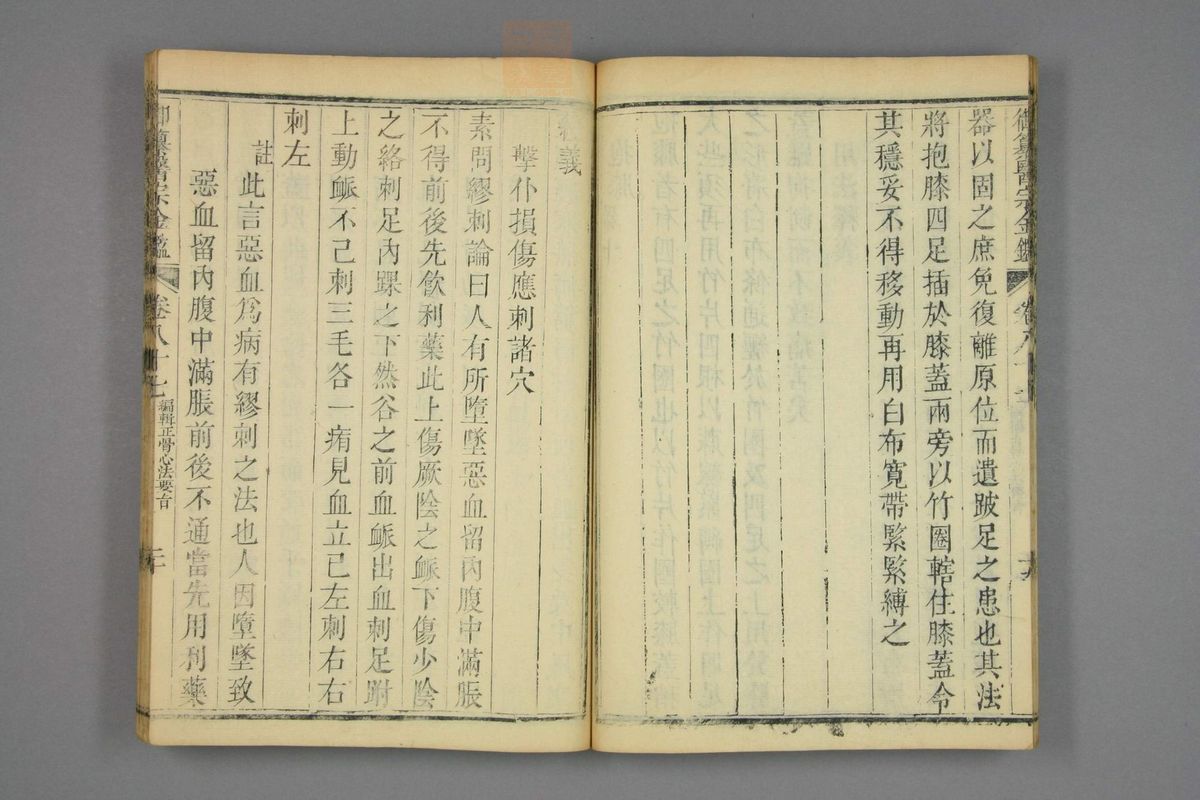 御纂醫宗金鑑 卷八十七
器以固之庶免復離原位而遺跛足之患也其法
將抱膝四足插於膝蓋兩旁以竹圈轄住膝蓋令
其穩妥不得移動再用白布寬帶緊緊縛之
義
擊仆損傷應刺諸穴
素問繆刺論曰人有所墮墜惡血留內腹中滿脹
不得前後先飲利藥此上傷厥陰之脈下傷少陰
之絡刺足內踝之下然谷之前血脈出血刺足跗
上動脈不已刺三毛各一痏見血立已左刺右右
刺左
註
此言惡血為病有繆刺之法也人因墮墜致
惡血留內腹中滿脹前後不通當先用利藥
御纂醫宗金鑑 卷八十七 編輯正骨心法要旨 二十